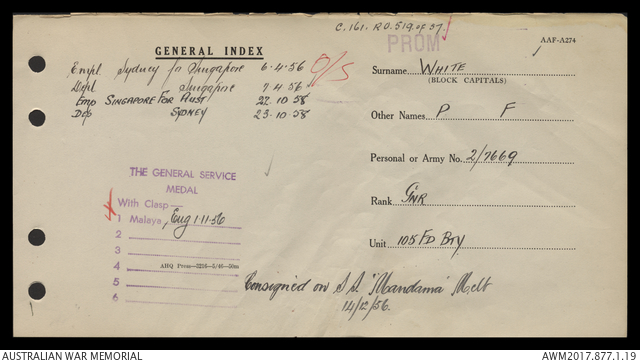 C.161. R.O. 519 of 57.
PROM
AAF-A274
GENERAL INDEX
Empl. Sydney for Singapore 6.4.56 O/S
Dept Singapore 7.4.56
Emp SINGAPORE FOR AUST 22.10.58
Dep SYDNEY 23.10.58
Surname WHITE
(BLOCK CAPITALS)
Other Names P F
Personal or Army No. 2/7669
Rank GNR
Unit 105 FD BTY
THE GENERAL SERVICE
MEDAL
With Clasp
1 Malaya,
2
3
4
5
6
AHQ Prom—
Consigned on S.S. "Mandama" Melb
14/12/56.
AUSTRALIAN WAR MEMORIAL
AWM2017.877.1.19